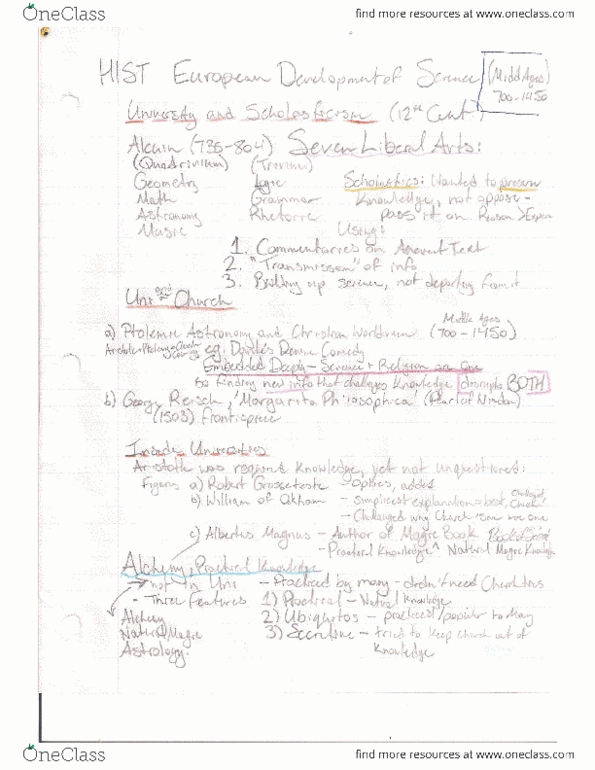 OneClass
find more resources at www.oneclass.com
HIST European Development of Science (Midd Ages)
700-1450
University and Scholasticism (12th Cent.)
Alcuin (735-804) Seven Liberal Arts:
(Quadrivium) (Trivium)
Geometry Logic Scholastics: Wanted to preserve
Math Grammar Knowledge, not oppose -
Astronomy Rhetoric pass it on Reason > Exper
Music Using:
1. Commentaries on Ancient Text
2. "Transmission" of info
3. Building up science, not departing from it
Uni and Church
Middle Ages
a) Ptolemic Astronomy and Christian Worldview (700-1450)
Aristotle + Ptolemy e.g. Dante's Divine Comedy
Embedded Deeply - Science + Religion are
so finding new info that challenges Knowledge disrupts BOTH
b) George Reisch, 'Margarita Philosophica' (Pearl of Wisdom)
(1503) frontispiece
Inside Universities
Aristotle was required Knowledge, yet not unquestioned:
Figures a) Robert Grosseteste - Optics, added
b) William of Okham - simpliciest explanation = best, Challenged Church
- Challenged why Church
c) Albertus Magnus - Author of Magic Book
- Practical Knowledge ^ Natural Magic Knowledge
Alchemy, Practical Knowledge
not in Uni - Practiced by many - didn't need
- Three Features 1) Practical - Natural Knowledge
Alchemy 2) Ubiquitos - practiced/popular to Many
Natural Magic 3) Secritive - tried to keep church out of
Astrology. Knowledge
OneClass
find more resources at www.oneclass.com